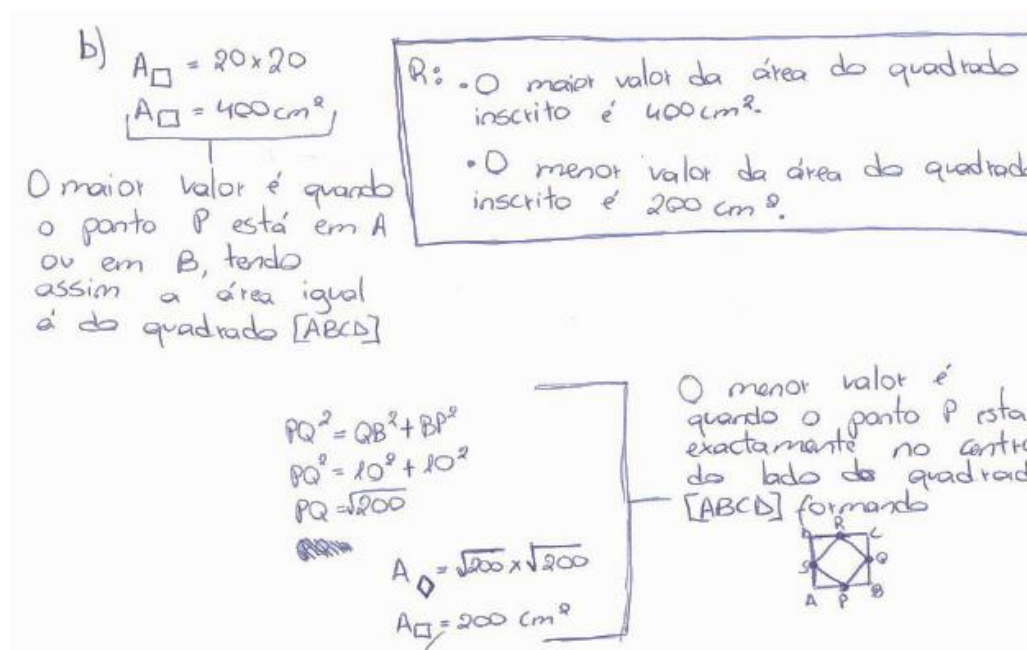 b) A□ = 20×20
A□ = 400 cm²
O maior valor é quando
o ponto P está em A
ou em B, tendo
assim a área igual
á do quadrado [ABCD]
R: • O maior valor da área do quadrado
inscrito é 400 cm².
• O menor valor da área do quadrado
inscrito é 200 cm².
PQ² = QB² + BP²
PQ² = 10² + 10²
PQ = √200
A◇ = √200 × √200
A□ = 200 cm²
O menor valor é
quando o ponto P esta
exactamente no centro
do lado do quadrado
[ABCD] formando
D R C
S Q
A P B